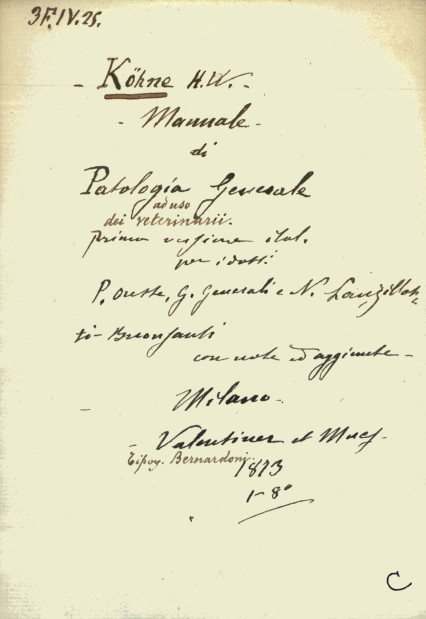 3F.IV.25.
- Köhne H.W. -
- Manuale -
di
Patologia Generale
ad uso
dei veterinarii.
prima versione ital.
per i dotti
P. Oreste, G. Generali e N. Lanzillot=
ti-Buonsanti
con note ed aggiunte -
Milano -
- Valentiner et Mues -
Tipog. Bernardoni.
1873
1-8°
C